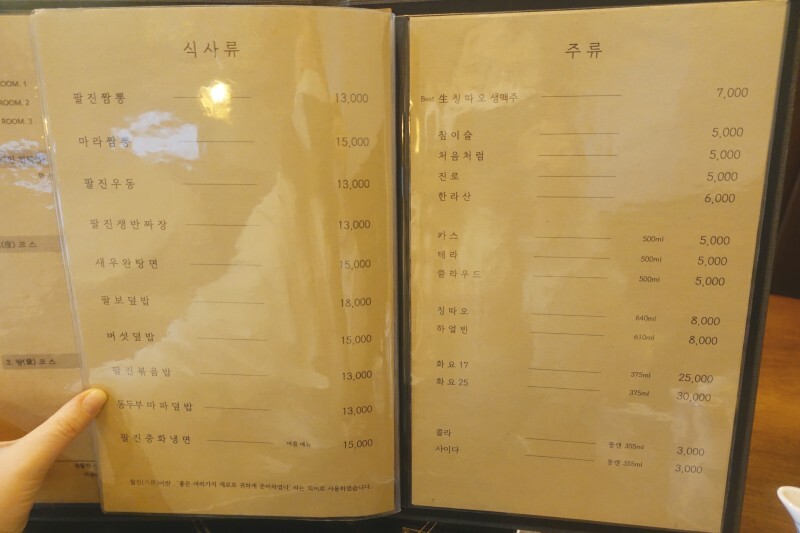 ROOM. 1
ROOM. 2
ROOM. 3
코스
코스
식사류
팔진짬뽕 13,000
마라짬뽕 15,000
팔진우동 13,000
팔진쟁반짜장 13,000
새우완탕면 15,000
팔보덮밥 18,000
버섯덮밥 15,000
팔진볶음밥 13,000
동두부마파덮밥 13,000
팔진중화냉면 여름 메뉴 15,000
팔진(八珍)이란 '좋은 여러가지 재료로 귀하게 준비하였다' 라는 의미로 사용하였습니다.
주류
Best 生 칭따오 생맥주 7,000
참이슬 5,000
처음처럼 5,000
진로 5,000
한라산 6,000
카스 500ml 5,000
테라 500ml 5,000
클라우드 500ml 5,000
칭따오 640ml 8,000
하얼빈 610ml 8,000
화요17 375ml 25,000
화요25 375ml 30,000
콜라 뚱캔 355ml 3,000
사이다 뚱캔 355ml 3,000